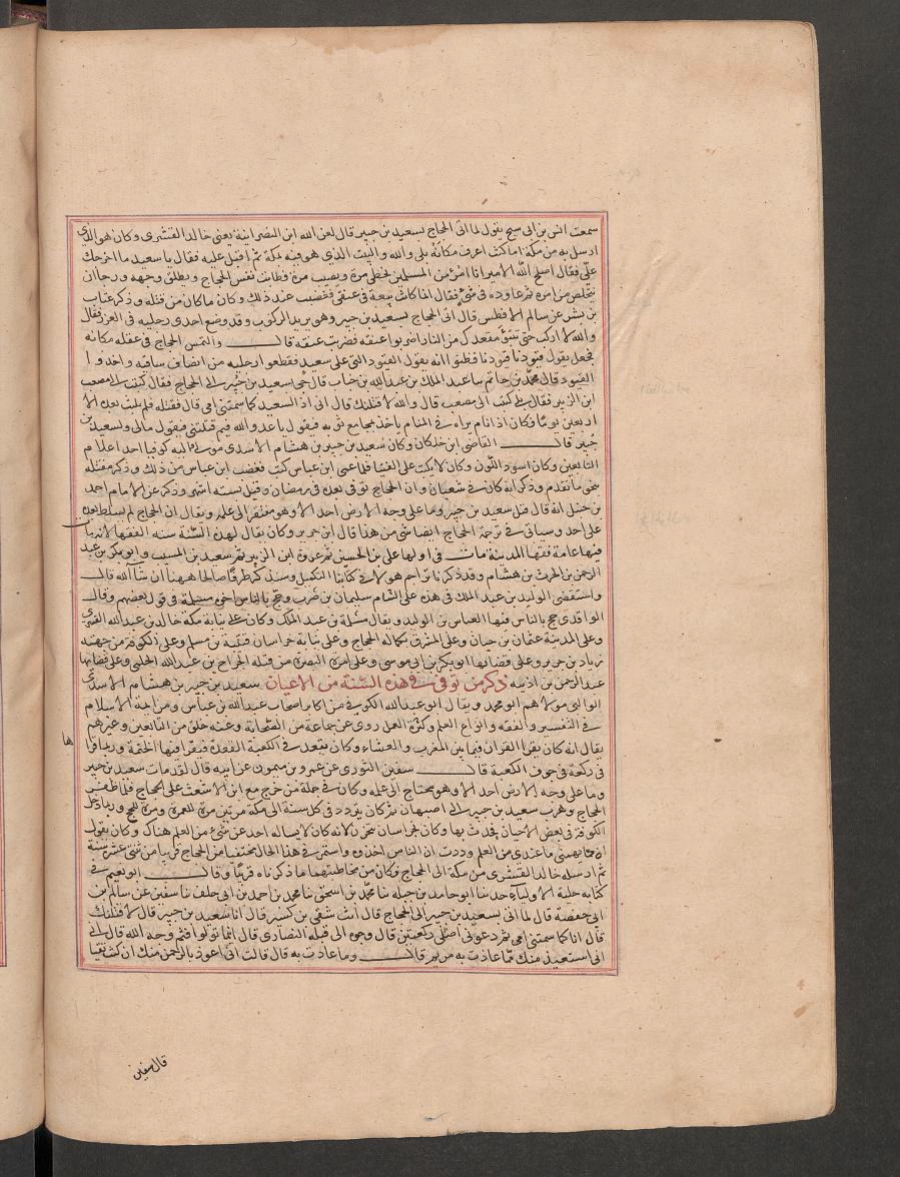 سمعت انس بن ابى سح يقول لما اتى الحجاج بسعيد بن جبير قال لعن الله ابن النصرانية يعنى خالدا القشرى وكان هو الذى
ارسل به من مكة اما كنت اعرف مكانه بلى والله والبيت الذي هو فيه بمكة ثم اقبل عليه فقال يا سعيد ما اخرجك
علىّ فقال اصلح الله الامير انا امرؤ من المسلمين يخطى مرة ويصيب مرة فطابت نفس الحجاج ويطلق وجهه ورجا ان
يتخلص من امره ثم عاوده فى شئ فقال انما كانت بيعة فى عنقى فغضب عند ذلك وكان ما كان من قتله وذكر عتاب
بن بشر عن سالم الافطس قال اتى الحجاج بسعيد بن جبير وهو يريد الركوب وقد وضع احدى رجليه فى الغرز فقال
والله لا اركب حتى تتبوّء مقعدك من النار اضربوا عنقه فضربت عنقه قال والتمس الحجاج فى عقله مكانه
فجعل يقول قيودنا قيودنا فظنوا انه يقول القيود التى على سعيد فقطعوا رجليه من انصاف ساقيه واخذوا
القيود قال محمد بن حاتم سا عبد الملك بن عبد الله بن خباب قال جى سعيد بن جبير الى الحجاج فقال كتبت الى مصعب
ابن الزبير فقال بلى كتبت الى مصعب قال والله لاقتلنك قال انى اذ السعيد كما سمتنى امى قال فقتله فلم يلبث بعده الا
اربعين يوما وكان اذا نام يراه فى المنام ياخذ بمجامع ثوبه فيقول يا عدو الله فيم قتلتنى فيقول مالى ولسعيد بن
جبير قال القاضى ابن خلكان وكان سعيد بن جبير بن هشام الاسدى مولى والبه كوفيا احد اعلام
التابعين وكان اسود اللون وكان لا يكتب على الفتيا فلما عمى ابن عباس كتب فغضب ابن عباس من ذلك وذكر مقتله
بنحو ما تقدم وذكر انه كان فى شعبان وان الحجاج توفى بعده فى رمضان وقيل بستة اشهر وذكر عن الامام احمد
بن حنبل انه قال قتل سعيد بن جبير وما على وجه الارض احد الا وهو مفتقر الى علمه ويقال ان الحجاج لم يسلط بعده
على احد وسياتى فى ترجمة الحجاج ايضا شئ من هذا قال ابن جرير وكان يقال لهذه السنة سنه الفقها لانه مات
فيها عامة فقها المدينة مات فى اولها على بن الحسين ثم عروة ابن الزبير ثم سعيد بن المسيب وابو بكر بن عبد
الرحمن بن الحرث بن هشام وقد ذكرنا تراجم هولاء فى كتابنا التكميل وسنذكر طرفا صالحا ههنا ان شاء الله قال
واستقضى الوليد بن عبد الملك فى هذه على الشام سليمان بن صرب وحج بالناس اخوه مسلمة فى قول بعضهم وقال
الواقدى حج بالناس فيها العباس بن الوليد ويقال مسلمة بن عبد الملك وكان على نيابة مكة خالد بن عبد الله القسرى
وعلى المدينة عثمان بن حيان وعلى المشرق بكماله الحجاج وعلى نيابة خراسان قتيبة بن مسلم وعلى الكوفة من جهته
زياد بن جرير وعلى قضايها ابو بكر بن ابى موسى وعلى امرة البصرة من قبله الجراح بن عبد الله الحكمى وعلى قضايها
عبد الرحمن بن اذينه ذكر من توفى فى هذه السّنة من الاعيان سعيد بن جبير بن هشام الاسدى
الوالبى مولاهم ابو محمد ويقال ابو عبد الله الكوفى من اكابر اصحاب عبد الله بن عباس ومن ايمة الاسلام
فى التفسير والفقه وانواع العلم وكثرة العمل روى عن جماعة من الصّحابة وعنه خلق من التابعين وغيرهم
يقال انه كان يقرا القران فيما بين المغرب والعشاء وكان يقعد فى الكعبة القعدة فيقرا فيها الختمة وربما قراها
فى ركعة فى جوف الكعبة قال سفين الثورى عن عمرو بن ميمون عن ابيه قال لقد مات سعيد بن جبير
وما على وجه الارض احد الا وهو يحتاج الى علمه وكان فى جملة من خرج مع ابن الاشعث على الحجاج فلما ظفر
الحجاج وهرب سعيد بن جبير الى اصبهان ثم كان يتردد فى كل سنة الى مكة مرتين مرة للعمرة ومرة للحج وربما دخل
الكوفة فى بعض الاحيان فحدث بها وكان بخراسان سحرن لانه كان لا يساله احد عن شئ من العلم هناك وكان يقول
ان مما يهمنى ما عندى من العلم وددت ان الناس اخذوه واستمر فى هذا الحال مختفيا من الحجاج قريبا من ثنتى عشرة سنة
ثم ارسله خالد القسرى من مكة الى الحجاج فكان من مخاطبتهما ما ذكرناه قريبا وقال ابو نعيم فى
كتابه حلية الاولياء حدثنا ابو حامد بن جبله ثنا محمد بن اسحق ثنا محمد بن احمد بن ابى خلف ثنا سفين عن سالم بن
ابى حفصة قال لما اتى بسعيد بن جبير الى الحجاج قال انت شقى بن كسير قال انا سعيد بن جبير قال لاقتلنك
قال انا كما سمتنى امى ثم دعونى اصلى ركعتين قال وجهوه الى قبله النصارى قال اينما تولوا فثم وجه الله قال انى
استعيذ منك بما عاذت به مريم قال وما عاذت به قال قالت انى اعوذ بالرحمن منك ان كنت تقيا
قال سفين